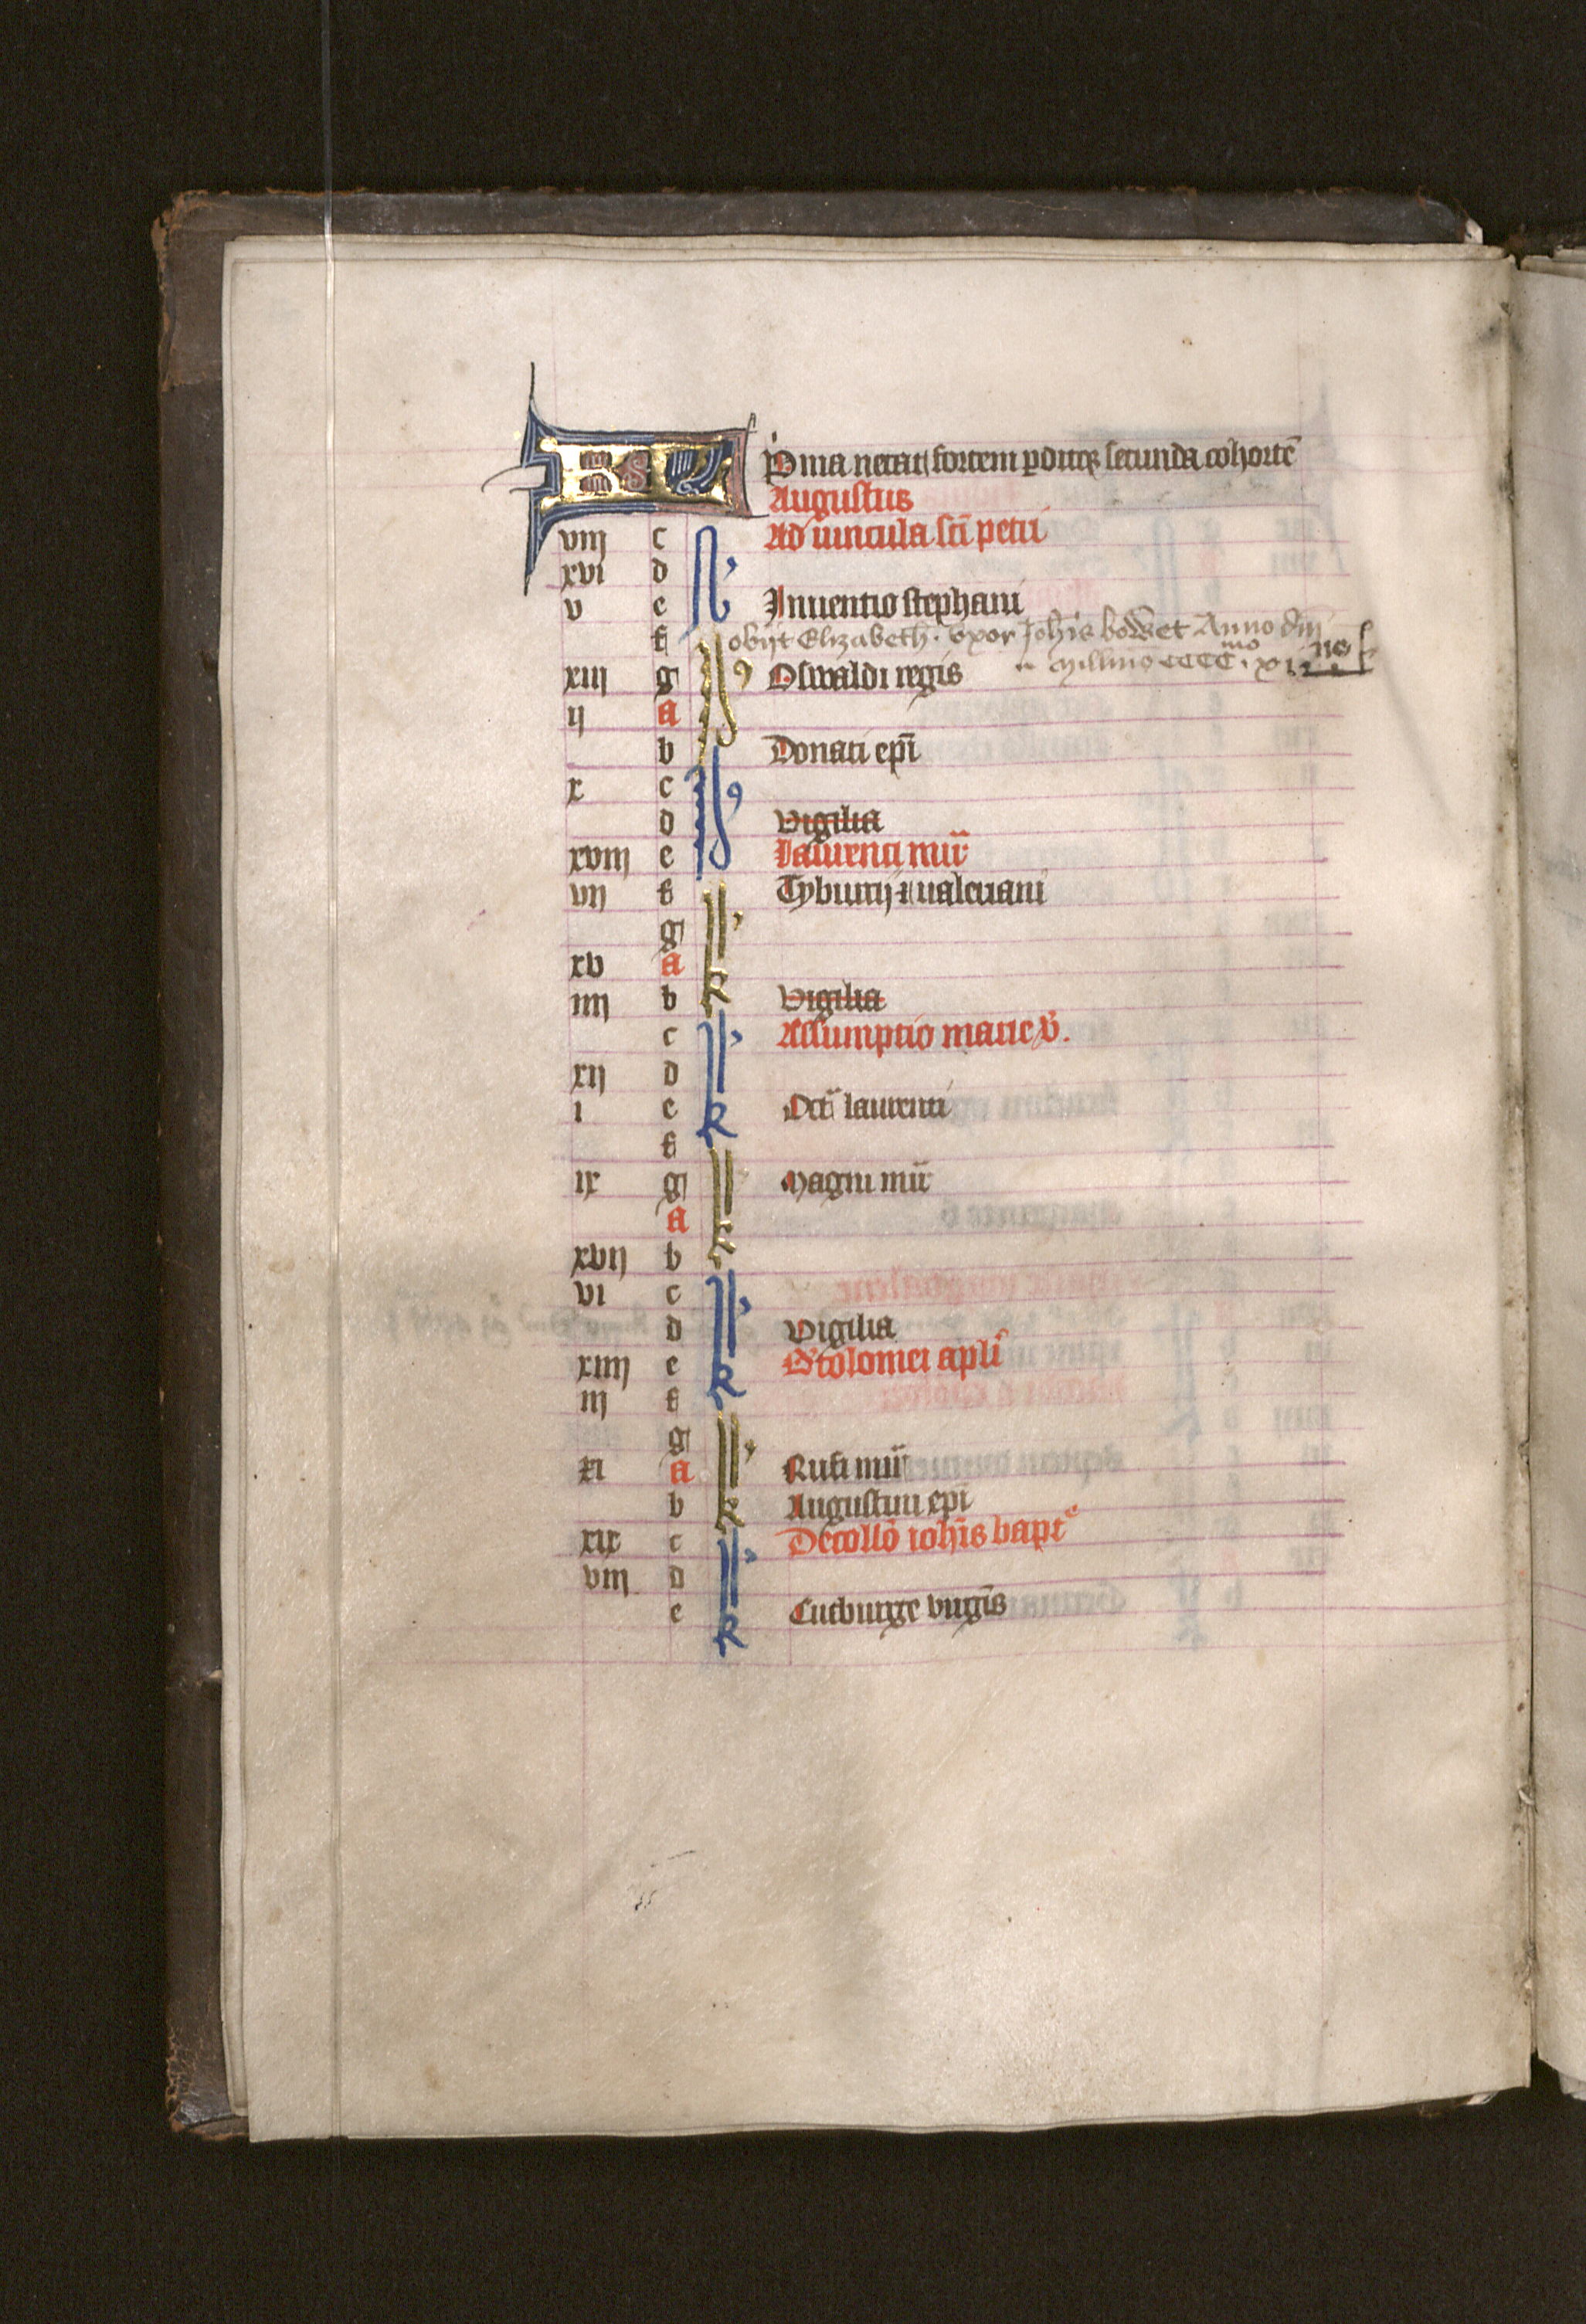 Pima necat fortem perditque secunda cohortē
Augustus
viij c Ad uincula sci petri
xvi d
v e Inuentio stephani
f obijt Elizabeth uxor Johis bowet Anno dni
Millmo CCCC mo
xiij g Oswaldi regis
ij a
b Donati epi
x c
d Vigilia
xviij e laurenti mr
vij f Tyburtij & ualeriani
g
xv a
iiij b Vigilia
c Assumptio marie v.
xij d
i e Oct laurenti
f
ix g Magni mr
a
xvij b
vi c
d Vigilia
xiiij e Btolomei apli
iij f
g
xi a Rufi mr
b Augustini epi
xix c Decollo iohis bapte
viij d
e Cutburge uirgis